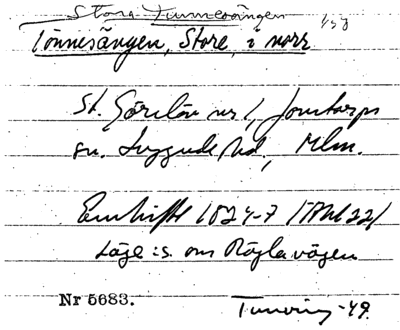 Stora Tinnesången
Tönnesången, Store, i norr
St. Görslöv nr 1, Jonstorps
sn. Luggude hd, Mlm.
Enskifte 1824-7 /Akt 22/
Läge: s. om Röglavägen
Nr 5683.
Tuneving -49.